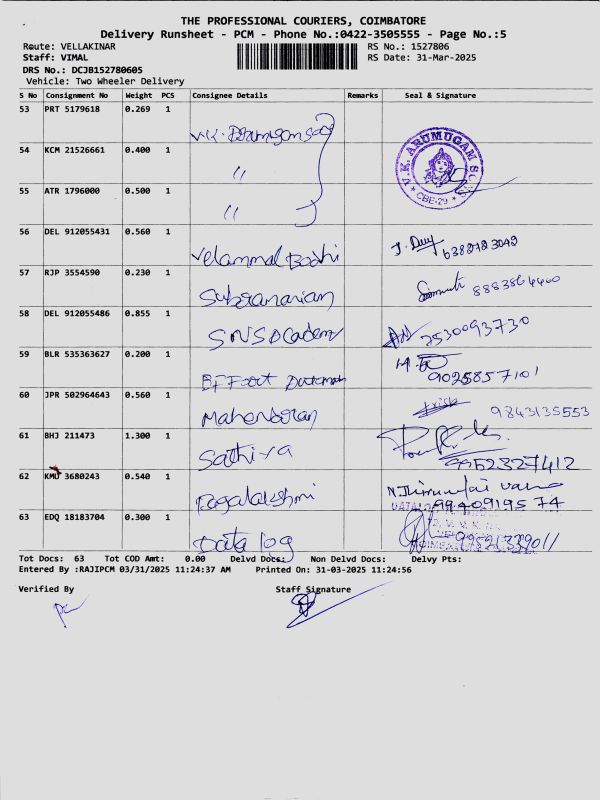 THE PROFESSIONAL COURIERS, COIMBATORE
Delivery Runsheet - PCM - Phone No.:0422-3505555 - Page No.:5
Route: VELLAKINAR RS No.: 1527806
Staff: VIMAL RS Date: 31-Mar-2025
DRS No.: DCJB152780605
Vehicle: Two Wheeler Delivery
S No Consignment No Weight PCS Consignee Details Remarks Seal & Signature
53 PRT 5179618 0.269 1 V.K.
V.K. ARUMUGAM SONS
CBE-29
54 KCM 21526661 0.400 1 "
55 ATR 1796000 0.500 1 "
56 DEL 912055431 0.560 1 Velammal Bodhi 6382783049
57 RJP 3554590 0.230 1 Subramanian 8883864400
58 DEL 912055486 0.855 1 SNS Academy 7530093730
59 BLR 535363627 0.200 1 9025857101
60 JPR 502964643 0.560 1 Mahendiran 9843135553
61 BHJ 211473 1.300 1 Sathiya 9952327412
62 KMU 3680243 0.540 1 Ragalakshmi 9940919574
63 EDQ 18183704 0.300 1 Data log
Tot Docs: 63 Tot COD Amt: 0.00 Delvd Docs: Non Delvd Docs: Delvy Pts:
Entered By :RAJIPCM 03/31/2025 11:24:37 AM Printed On: 31-03-2025 11:24:56
Verified By Staff Signature